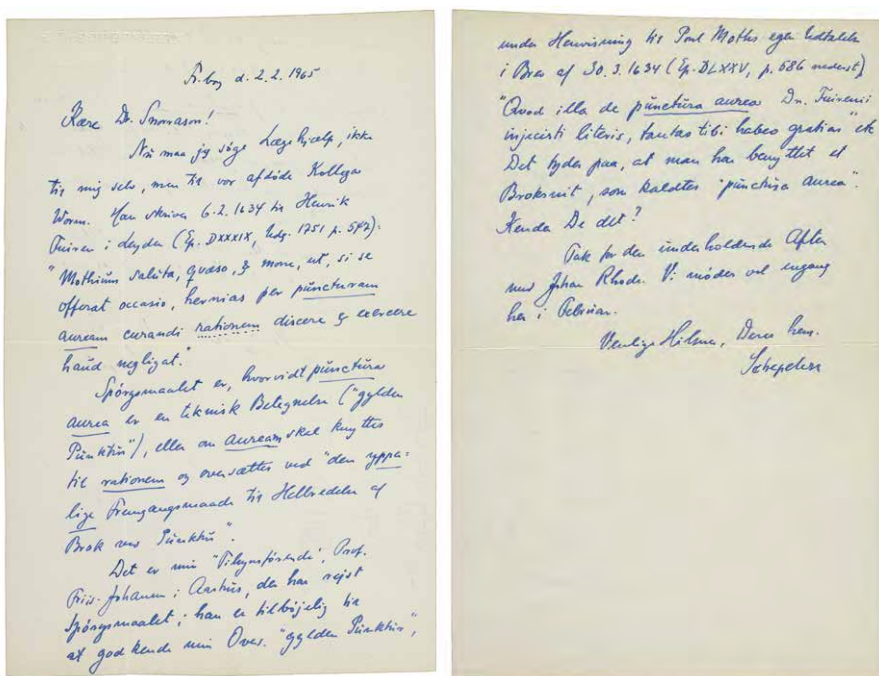 Fr.borg d. 2.2. 1965
Kære Dr. Snorrason!
Nu maa jeg søge Lægehjælp, ikke
til mig selv, men til vor afdøde Kollega
Worm. Han skriver 6.2. 1634 til Henrik
Fuiren i Leyden (Ep. DXXXIX, Udg. 1751 p. 547):
"Mothium saluta, quæso, & mone, ut, si se
offerat occasio, hernias per puncturam
auream curandi rationem discere & exercere
haud negligat."
Spørgsmaalet er, hvorvidt punctura
aurea er en teknisk Betegnelse ("gylden
Punktur"), eller om auream skal knyttes
til rationem og oversættes ved "den yppe=
lige Fremgangsmaade til Helbredelse af
Brok ved Punktur".
Det er min "Tilsynsførende", Prof.
Friis-Johansen i Aarhus, der har rejst
Spørgsmaalet; han er tilbøjelig til
at godkende min Overs. "gylden Punktur",
under Henvisning til Poul Moths egen Udtalelse
i Brev af 30.3. 1634 (Ep. DLXXV, p. 586 nederst)
"Quod illa de punctura aurea Dn. Fuirenii
injecisti literis, tantas tibi habeo gratias" etc
Det tyder paa, at man har benyttet et
Broksnit, som kaldtes "punctura aurea".
Kender De det?
Tak for den underholdende Aften
med Johan Rhode. Vi mødes vel engang
her i Februar.
Venlige Hilsner, Deres hen.
Schepelern